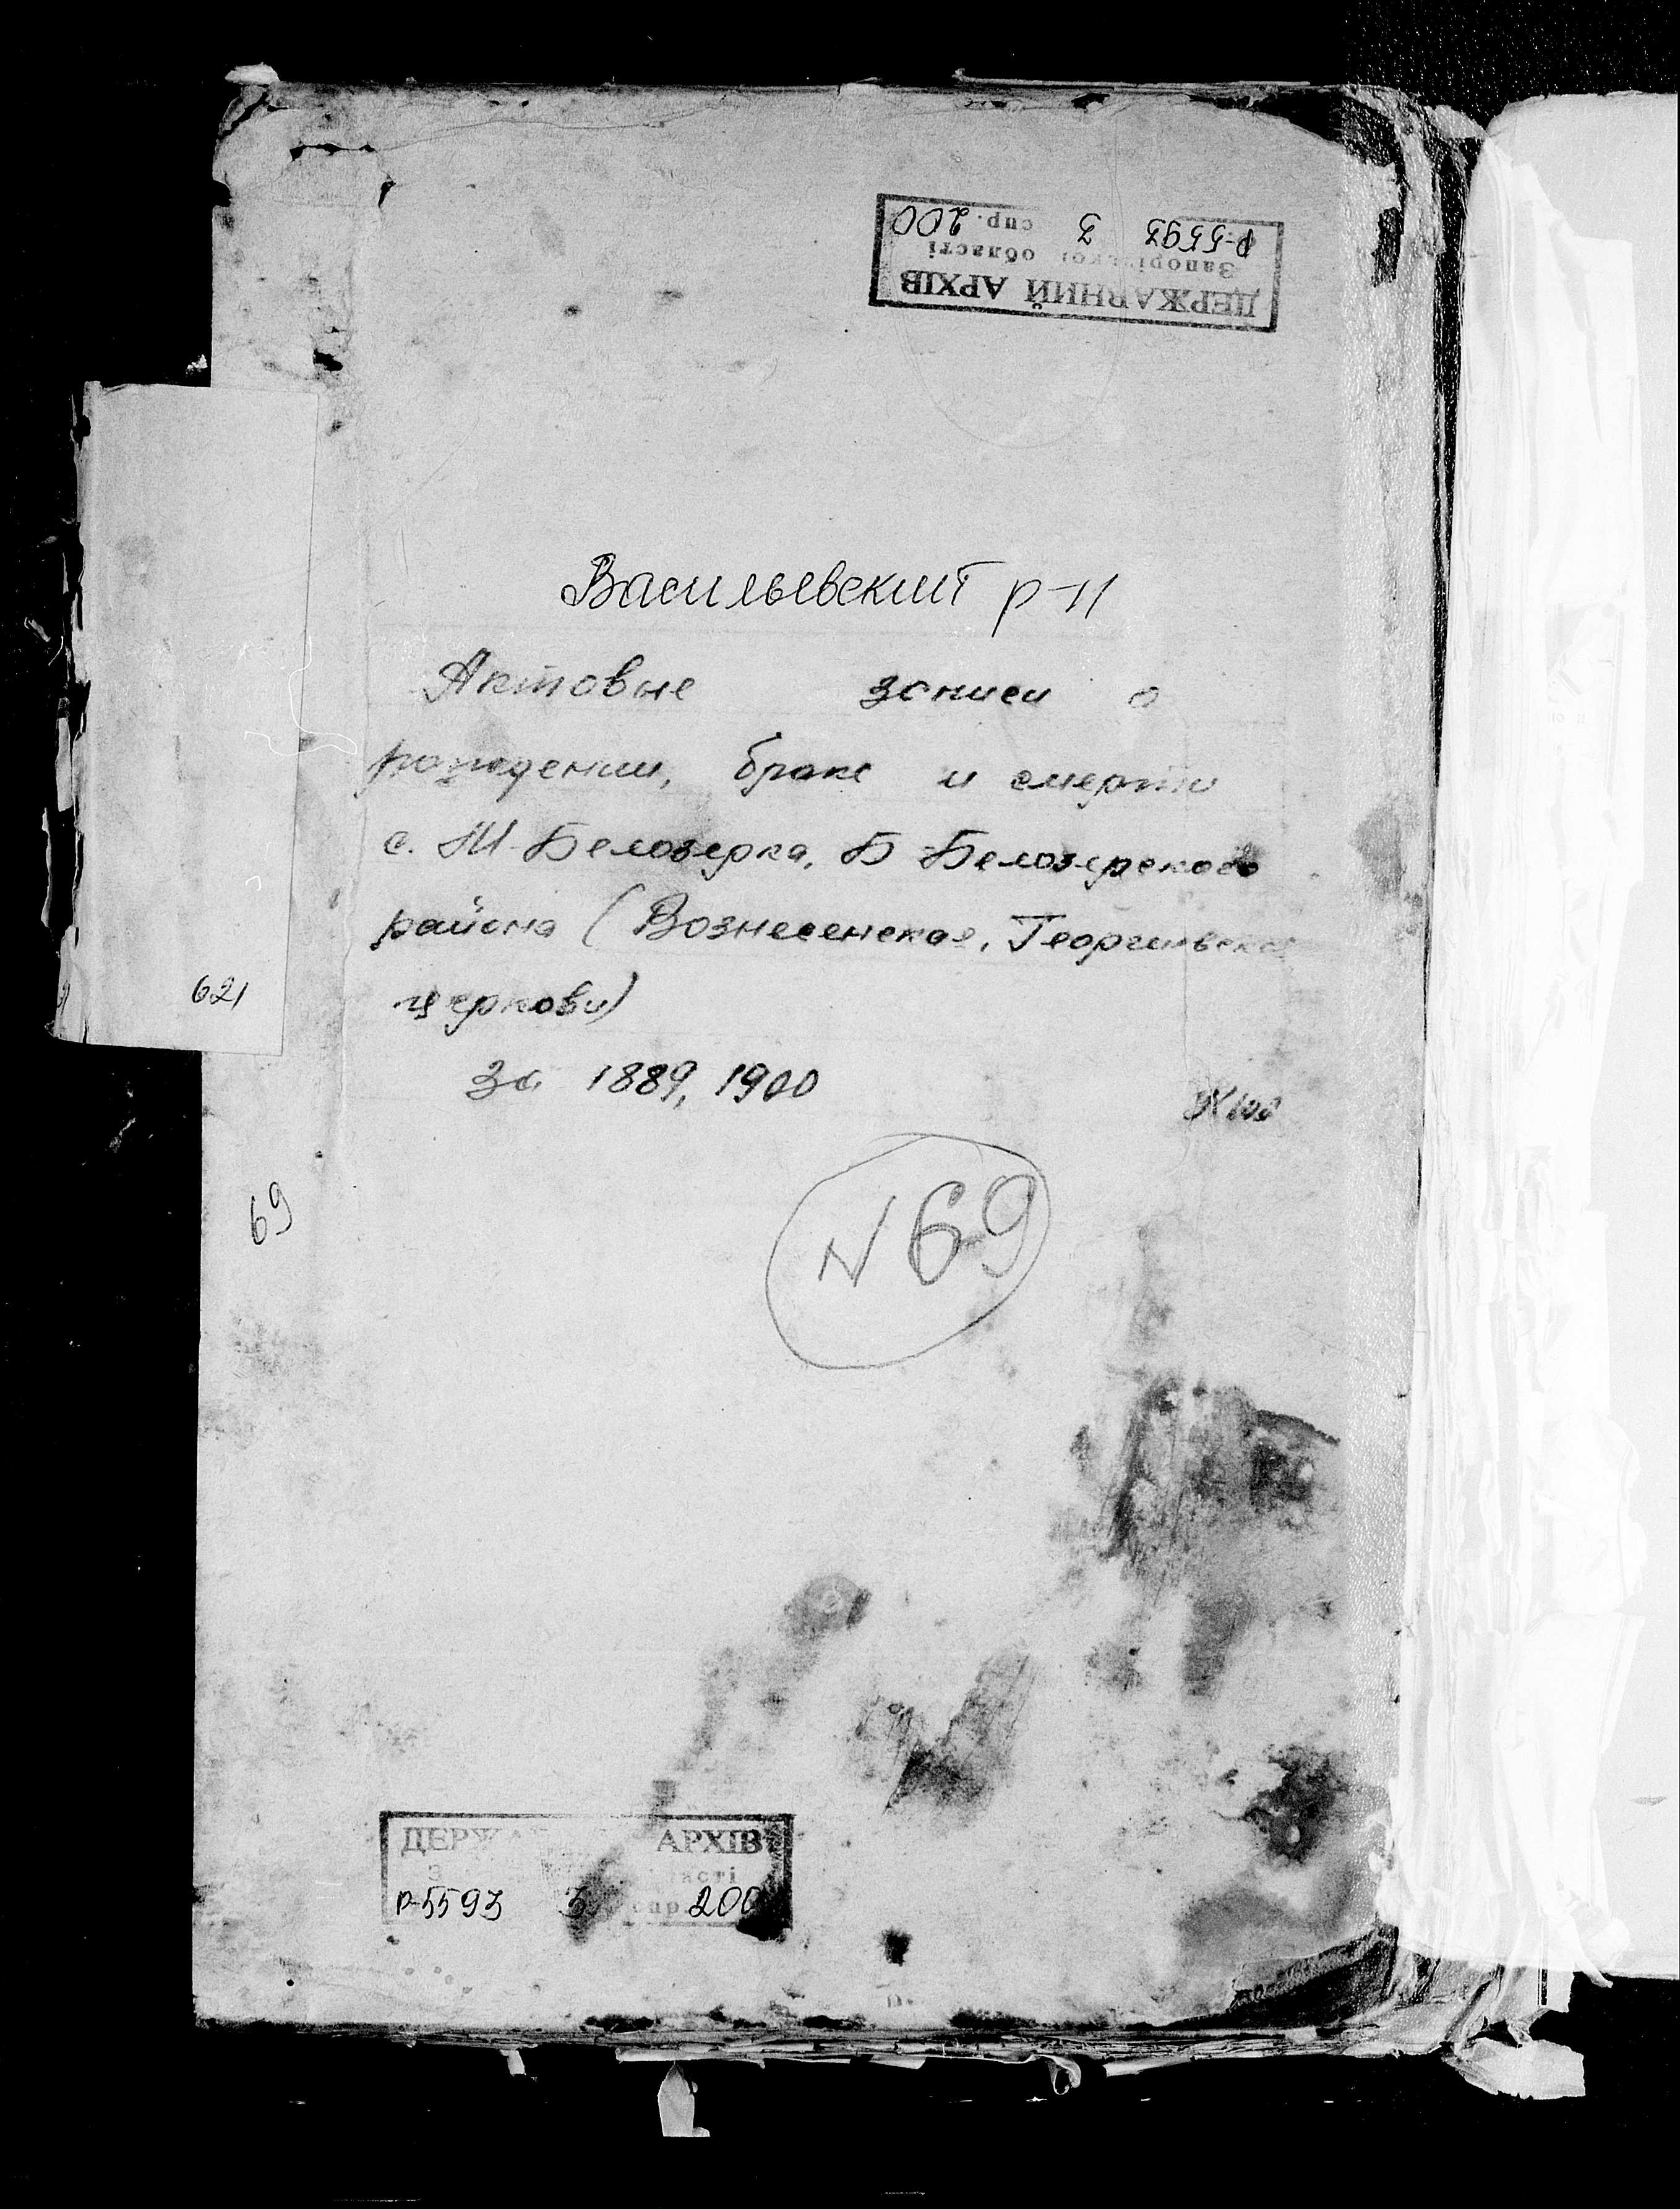 ДЕРЖАВНИЙ АРХІВ
Запорізької області
Р-5593 3 спр. 200
Васильевский р-н
Актовые записи о
рождении, браке и смерти
с. М-Белозерка, Б-Белозерского
района (Вознесенская, Георгиевская
церкови)
за 1889, 1900
621
69
N 69
ДЕРЖА АРХІВ
З асті
Р-5593 3 спр. 200